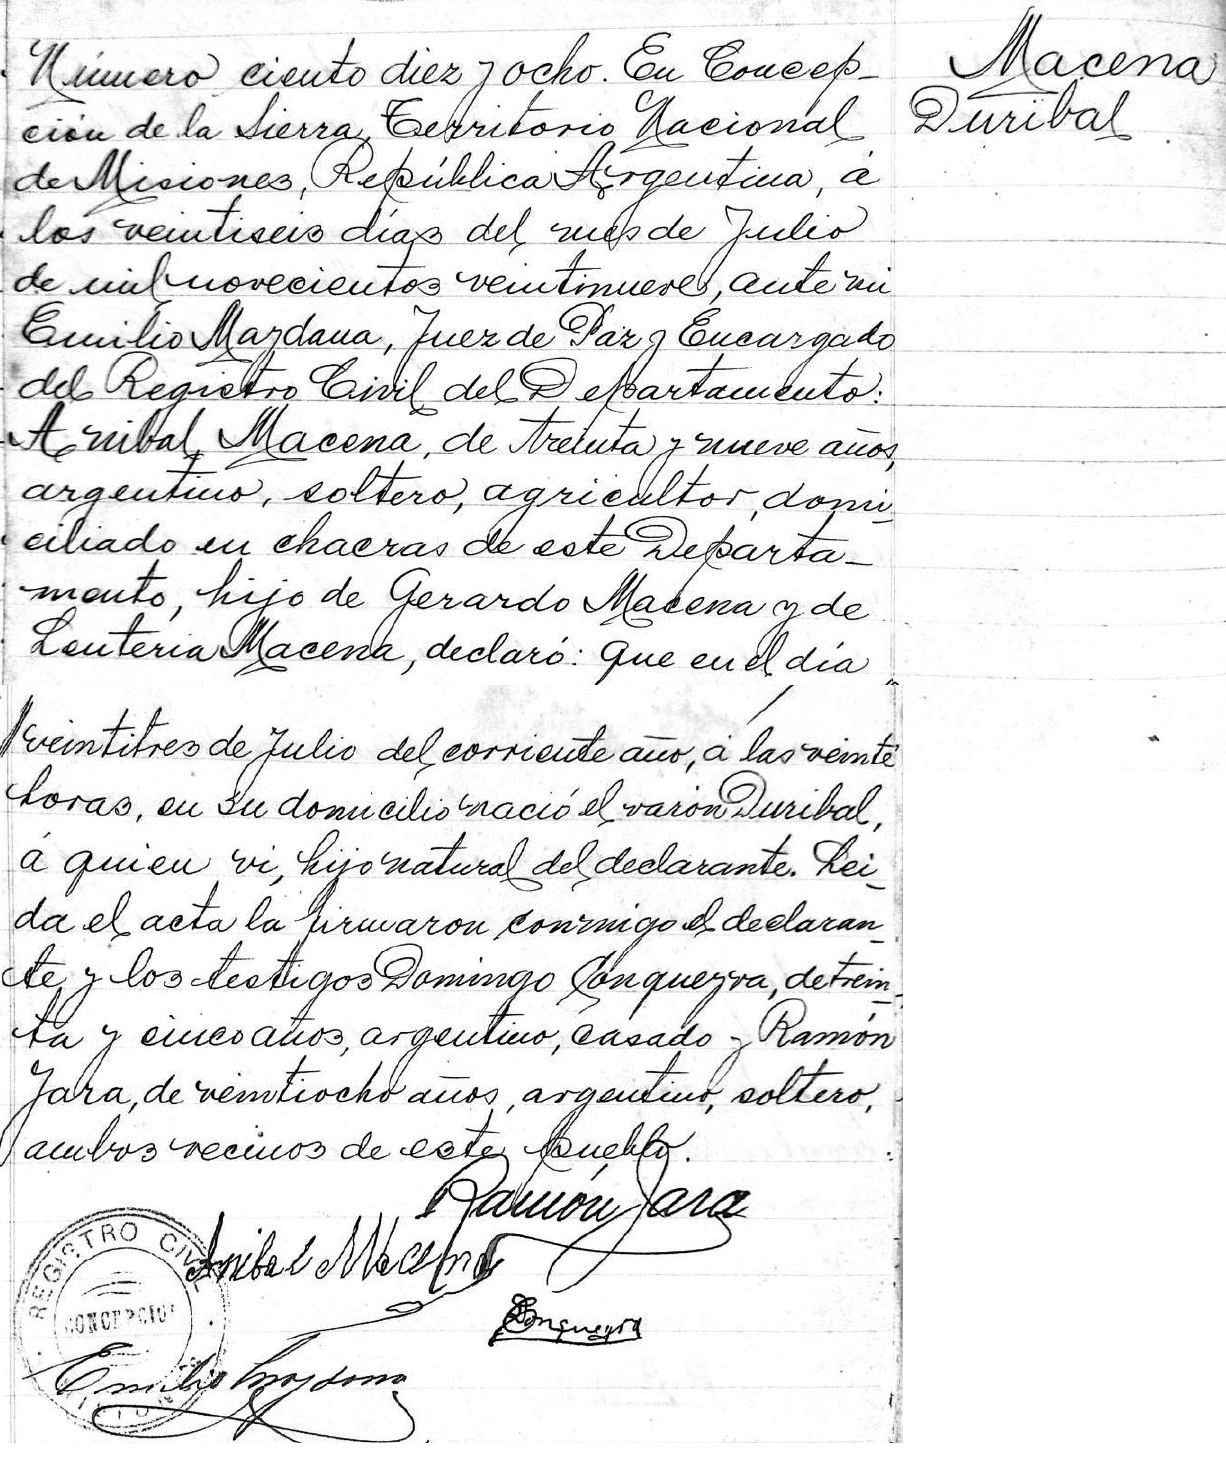 Macena
Duribal
Número ciento diez y ocho. En Concep-
ción de la Sierra, Territorio Nacional
de Misiones, República Argentina, á
los veintiseis días del mes de Julio
de mil novecientos veintinueve, ante mi
Emilio Maydana, Juez de Paz y Encargado
del Registro Civil del Departamento:
Anibal Macena, de treinta y nueve años,
argentino, soltero, agricultor, domi-
ciliado en chacras de este Departa-
mento, hijo de Gerardo Macena y de
Leuteria Macena, declaró: Que en el día
veintitres de Julio del corriente año, á las veinte
horas, en su domicilio nació el varón Duribal,
á quien vi, hijo natural del declarante. Lei-
da el acta la firmaron conmigo el declaran-
te y los testigos Domingo Conqueyra, de trein-
ta y cinco años, argentino, casado y Ramón
Jara, de veintiocho años, argentino, soltero,
ambos vecinos de este pueblo.
Ramón Jara
Anibal Macena
Conqueyra
Emilio Maydana
REGISTRO CIVIL
CONCEPCION